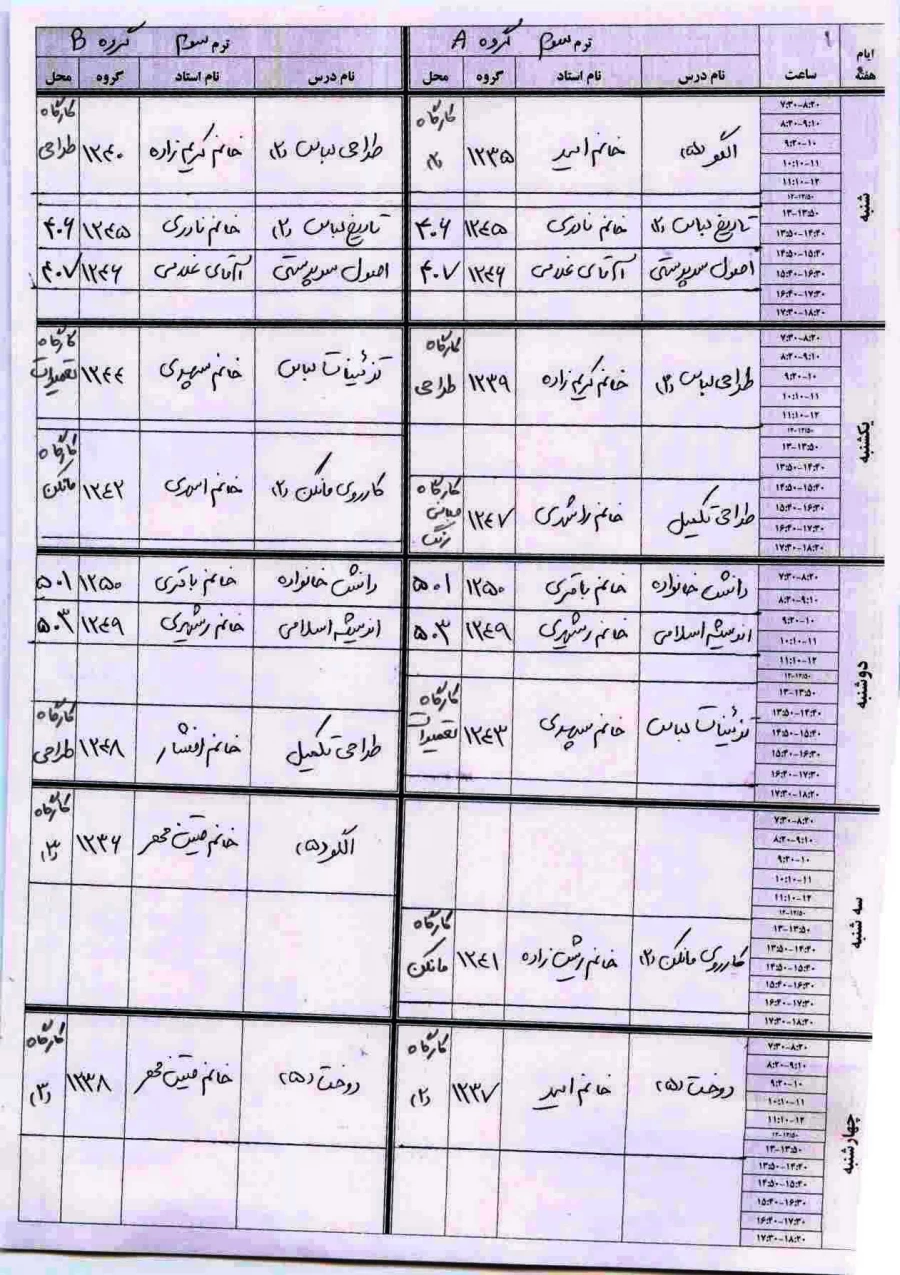 ترم سوم گروه A ترم سوم گروه B
ایام هفته ساعت نام درس نام استاد گروه محل نام درس نام استاد گروه محل
شنبه
۷:۳۰-۸:۲۰
۸:۲۰-۹:۱۰
۹:۲۰-۱۰
۱۰:۱۰-۱۱
۱۱:۱۰-۱۲
۱۲-۱۲/۵۰
۱۳-۱۳:۵۰
۱۳:۵۰-۱۴:۴۰
۱۴:۵۰-۱۵:۴۰
۱۵:۴۰-۱۶:۳۰
۱۶:۴۰-۱۷:۳۰
۱۷:۳۰-۱۸:۲۰
الگو (۵) ۱۲۳۵ کارگاه
طراحی لباس (۲) خانم کریم زاده ۱۲۴۰ کارگاه طراحی
تاریخ لباس (۲) خانم نادری ۱۲۴۵ ۴۰۶ تاریخ لباس (۲) خانم نادری ۱۲۴۵ ۴۰۶
اصول سرپرستی آقای غلامی ۱۲۴۶ ۴۰۷ اصول سرپرستی آقای غلامی ۱۲۴۶ ۴۰۷
یکشنبه
۷:۳۰-۸:۲۰
۸:۲۰-۹:۱۰
۹:۲۰-۱۰
۱۰:۱۰-۱۱
۱۱:۱۰-۱۲
۱۲-۱۲/۵۰
۱۳-۱۳:۵۰
۱۳:۵۰-۱۴:۴۰
۱۴:۵۰-۱۵:۴۰
۱۵:۴۰-۱۶:۳۰
۱۶:۴۰-۱۷:۳۰
۱۷:۳۰-۱۸:۲۰
طراحی لباس (۲) خانم کریم زاده ۱۲۳۹ کارگاه طراحی تزئینات لباس خانم سپهری ۱۲۴۴ کارگاه تعمیرات
کار روی مانکن (۲) خانم ۱۲۴۲ کارگاه مانکن
طراحی تکمیل خانم راشدی ۱۲۴۷ کارگاه مبانی رنگ
دوشنبه
۷:۳۰-۸:۲۰
۸:۲۰-۹:۱۰
۹:۲۰-۱۰
۱۰:۱۰-۱۱
۱۱:۱۰-۱۲
۱۲-۱۲/۵۰
۱۳-۱۳:۵۰
۱۳:۵۰-۱۴:۴۰
۱۴:۵۰-۱۵:۴۰
۱۵:۴۰-۱۶:۳۰
۱۶:۴۰-۱۷:۳۰
۱۷:۳۰-۱۸:۲۰
دانش خانواده خانم باقری ۱۲۵۰ ۵۰۱ دانش خانواده خانم باقری ۱۲۵۰ ۵۰۱
اندیشه اسلامی خانم رشهری ۱۲۴۹ ۵۰۳ اندیشه اسلامی خانم رشهری ۱۲۴۹ ۵۰۳
تزئینات لباس خانم سپهری ۱۲۴۳ کارگاه تعمیرات طراحی تکمیل خانم افشار ۱۲۴۸ کارگاه طراحی
سه شنبه
۷:۳۰-۸:۲۰
۸:۲۰-۹:۱۰
۹:۲۰-۱۰
۱۰:۱۰-۱۱
۱۱:۱۰-۱۲
۱۲-۱۲/۵۰
۱۳-۱۳:۵۰
۱۳:۵۰-۱۴:۴۰
۱۴:۵۰-۱۵:۴۰
۱۵:۴۰-۱۶:۳۰
۱۶:۴۰-۱۷:۳۰
۱۷:۳۰-۱۸:۲۰
الگو (۵) خانم متین مهر ۱۲۳۶ کارگاه (۳)
کار روی مانکن (۲) خانم زاده ۱۲۴۱ کارگاه مانکن
چهارشنبه
۷:۳۰-۸:۲۰
۸:۲۰-۹:۱۰
۹:۲۰-۱۰
۱۰:۱۰-۱۱
۱۱:۱۰-۱۲
۱۲-۱۲/۵۰
۱۳-۱۳:۵۰
۱۳:۵۰-۱۴:۴۰
۱۴:۵۰-۱۵:۴۰
۱۵:۴۰-۱۶:۳۰
۱۶:۴۰-۱۷:۳۰
۱۷:۳۰-۱۸:۲۰
دوخت (۵) خانم ۱۲۳۷ کارگاه (۲) دوخت (۵) خانم متین مهر ۱۲۳۸ کارگاه (۳)